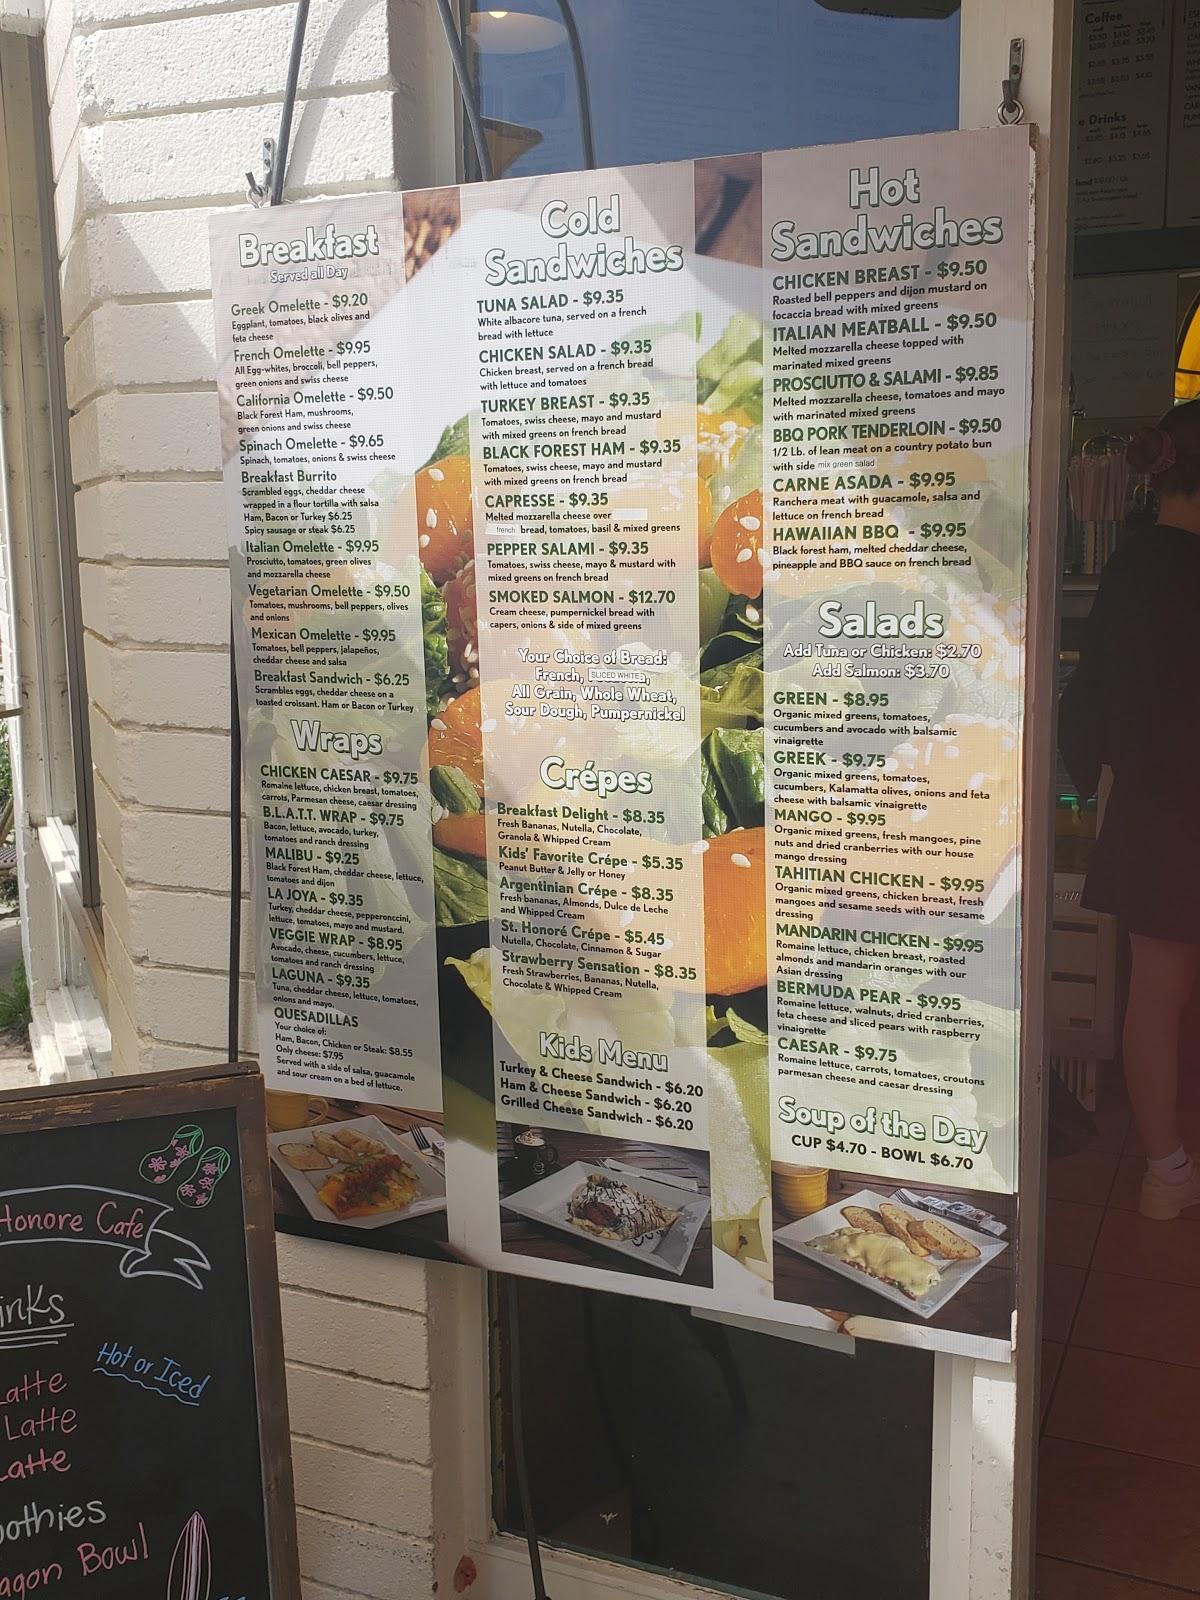 Breakfast
Served all Day
Greek Omelette - $9.20
Eggplant, tomatoes, black olives and
feta cheese
French Omelette - $9.95
All Egg-whites, broccoli, bell peppers,
green onions and swiss cheese
California Omelette - $9.50
Black Forest Ham, mushrooms,
green onions and swiss cheese
Spinach Omelette - $9.65
Spinach, tomatoes, onions & swiss cheese
Breakfast Burrito
Scrambled eggs, cheddar cheese
wrapped in a flour tortilla with salsa
Ham, Bacon or Turkey $6.25
Spicy sausage or steak $6.25
Italian Omelette - $9.95
Prosciutto, tomatoes, green olives
and mozzarella cheese
Vegetarian Omelette - $9.50
Tomatoes, mushrooms, bell peppers, olives
and onions
Mexican Omelette - $9.95
Tomatoes, bell peppers, jalapeños,
cheddar cheese and salsa
Breakfast Sandwich - $6.25
Scrambles eggs, cheddar cheese on a
toasted croissant. Ham or Bacon or Turkey
Wraps
CHICKEN CAESAR - $9.75
Romaine lettuce, chicken breast, tomatoes,
carrots, Parmesan cheese, caesar dressing
B.L.A.T.T. WRAP - $9.75
Bacon, lettuce, avocado, turkey,
tomatoes and ranch dressing
MALIBU - $9.25
Black Forest Ham, cheddar cheese, lettuce,
tomatoes and dijon
LA JOYA - $9.35
Turkey, cheddar cheese, pepperonccini,
lettuce, tomatoes, mayo and mustard.
VEGGIE WRAP - $8.95
Avocado, cheese, cucumbers, lettuce,
tomatoes and ranch dressing
LAGUNA - $9.35
Tuna, cheddar cheese, lettuce, tomatoes,
onions and mayo.
QUESADILLAS
Your choice of:
Ham, Bacon, Chicken or Steak: $8.55
Only cheese: $7.95
Served with a side of salsa, guacamole
and sour cream on a bed of lettuce.
Cold
Sandwiches
TUNA SALAD - $9.35
White albacore tuna, served on a french
bread with lettuce
CHICKEN SALAD - $9.35
Chicken breast, served on a french bread
with lettuce and tomatoes
TURKEY BREAST - $9.35
Tomatoes, swiss cheese, mayo and mustard
with mixed greens on french bread
BLACK FOREST HAM - $9.35
Tomatoes, swiss cheese, mayo and mustard
with mixed greens on french bread
CAPRESSE - $9.35
Melted mozzarella cheese over
french bread, tomatoes, basil & mixed greens
PEPPER SALAMI - $9.35
Tomatoes, swiss cheese, mayo & mustard with
mixed greens on french bread
SMOKED SALMON - $12.70
Cream cheese, pumpernickel bread with
capers, onions & side of mixed greens
Your Choice of Bread:
French, SLICED WHITE,
All Grain, Whole Wheat,
Sour Dough, Pumpernickel
Crépes
Breakfast Delight - $8.35
Fresh Bananas, Nutella, Chocolate,
Granola & Whipped Cream
Kids' Favorite Crépe - $5.35
Peanut Butter & Jelly or Honey
Argentinian Crépe - $8.35
Fresh bananas, Almonds, Dulce de Leche
and Whipped Cream
St. Honoré Crépe - $5.45
Nutella, Chocolate, Cinnamon & Sugar
Strawberry Sensation - $8.35
Fresh Strawberries, Bananas, Nutella,
Chocolate & Whipped Cream
Kids Menu
Turkey & Cheese Sandwich - $6.20
Ham & Cheese Sandwich - $6.20
Grilled Cheese Sandwich - $6.20
Hot
Sandwiches
CHICKEN BREAST - $9.50
Roasted bell peppers and dijon mustard on
focaccia bread with mixed greens
ITALIAN MEATBALL - $9.50
Melted mozzarella cheese topped with
marinated mixed greens
PROSCIUTTO & SALAMI - $9.85
Melted mozzarella cheese, tomatoes and mayo
with marinated mixed greens
BBQ PORK TENDERLOIN - $9.50
1/2 Lb. of lean meat on a country potato bun
with side mix green salad
CARNE ASADA - $9.95
Ranchera meat with guacamole, salsa and
lettuce on french bread
HAWAIIAN BBQ - $9.95
Black forest ham, melted cheddar cheese,
pineapple and BBQ sauce on french bread
Salads
Add Tuna or Chicken: $2.70
Add Salmon: $3.70
GREEN - $8.95
Organic mixed greens, tomatoes,
cucumbers and avocado with balsamic
vinaigrette
GREEK - $9.75
Organic mixed greens, tomatoes,
cucumbers, Kalamatta olives, onions and feta
cheese with balsamic vinaigrette
MANGO - $9.95
Organic mixed greens, fresh mangoes, pine
nuts and dried cranberries with our house
mango dressing
TAHITIAN CHICKEN - $9.95
Organic mixed greens, chicken breast, fresh
mangoes and sesame seeds with our sesame
dressing
MANDARIN CHICKEN - $9.95
Romaine lettuce, chicken breast, roasted
almonds and mandarin oranges with our
Asian dressing
BERMUDA PEAR - $9.95
Romaine lettuce, walnuts, dried cranberries,
feta cheese and sliced pears with raspberry
vinaigrette
CAESAR - $9.75
Romaine lettuce, carrots, tomatoes, croutons
parmesan cheese and caesar dressing
Soup of the Day
CUP $4.70 - BOWL $6.70
Honore Cafe
inks
Hot or Iced
Latte
Latte
Latte
oothies
agon Bowl
Coffee
e Drinks